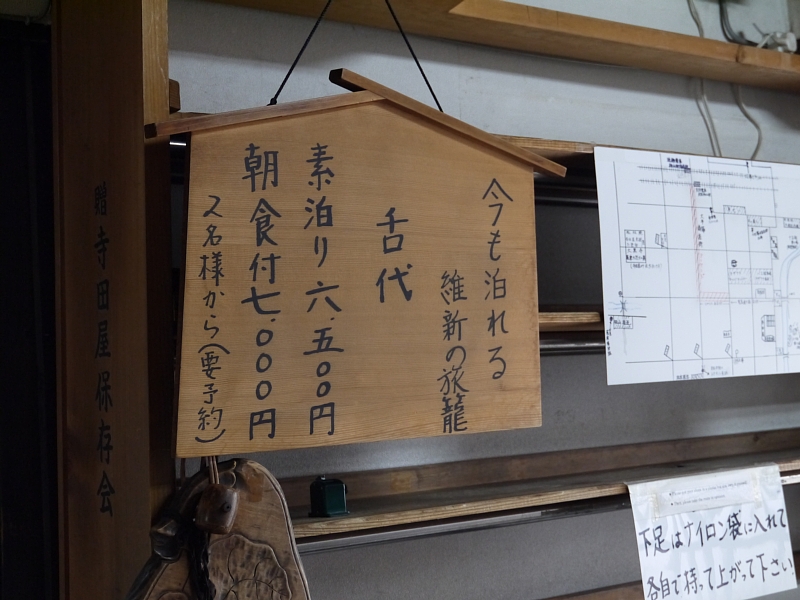 今も泊れる
維新の旅籠
舌代
素泊り六.五〇〇円
朝食付七.〇〇〇円
2名様から(要予約)
贈寺田屋保存会
下足はナイロン袋に入れて
各自で持って上がって下さい